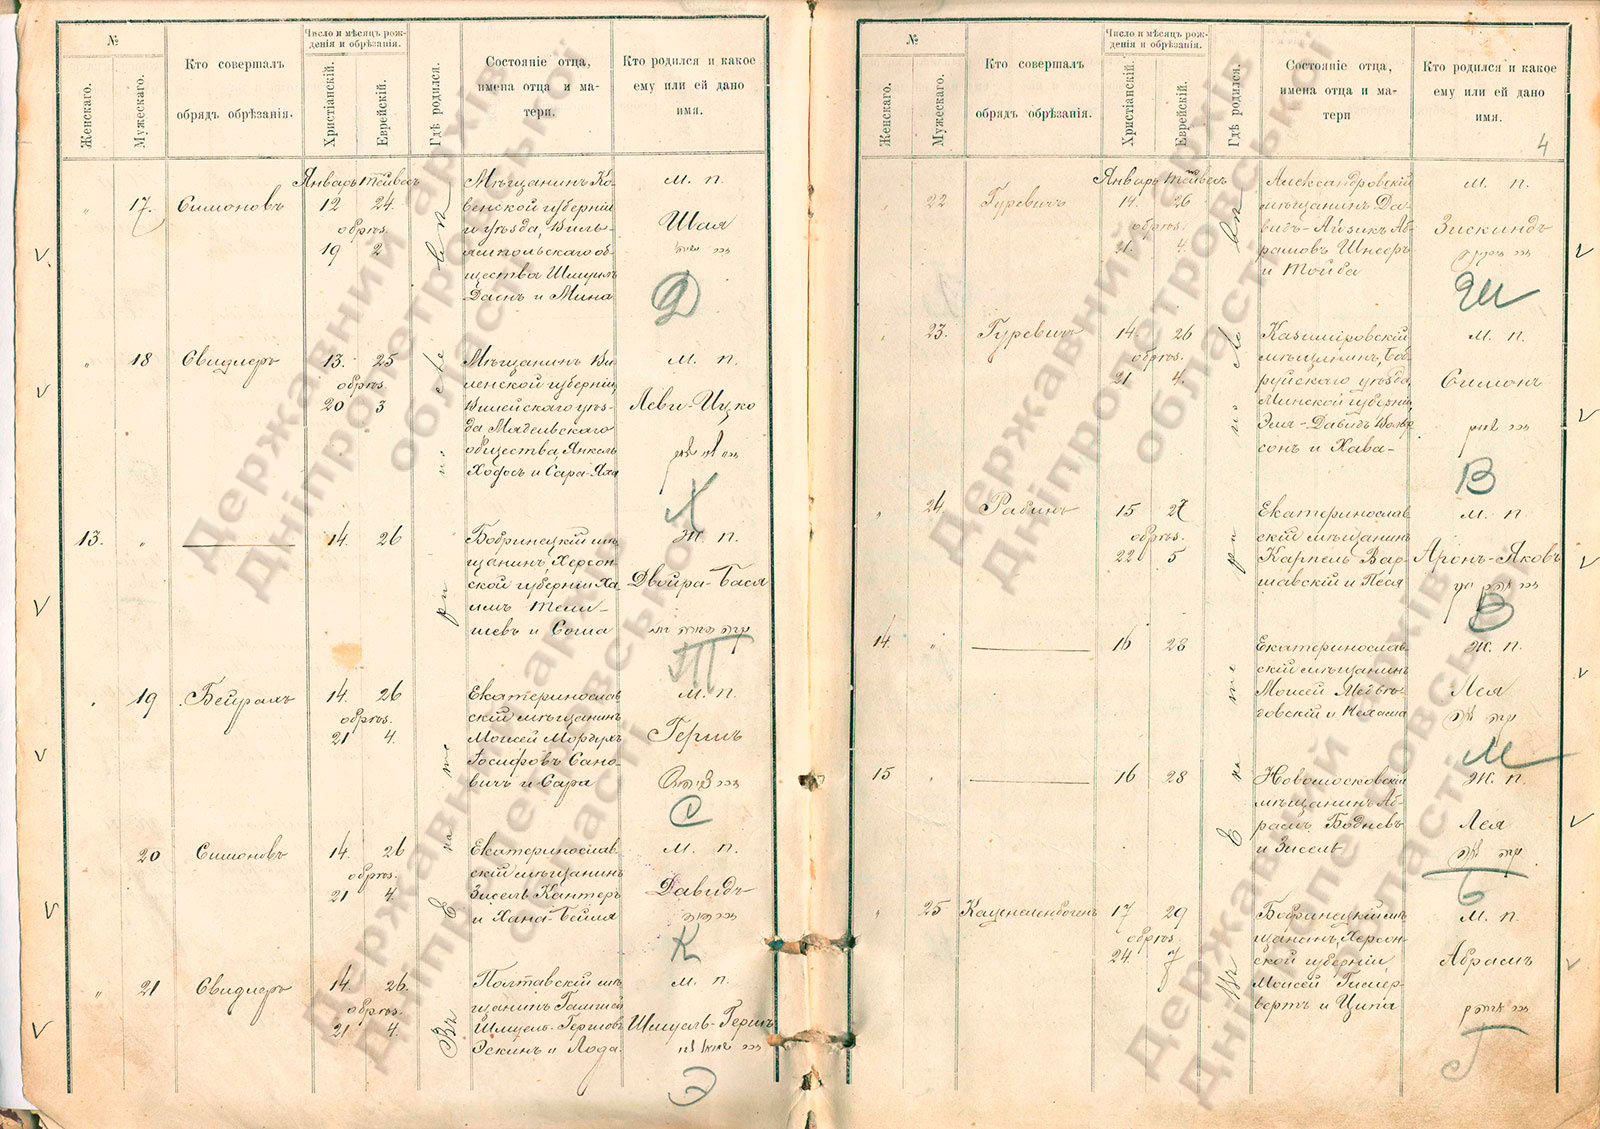 №
Женскаго.
Мужескаго.
Кто совершалъ
обрядъ обрѣзанія.
Число и мѣсяцъ рож-
денія и обрѣзанія.
Христіанскій.
Еврейскій.
Гдѣ родился.
Состояніе отца,
имена отца и ма-
тери.
Кто родился и какое
ему или ей дано
имя.
Въ Екатеринославѣ
17. Симоновъ
Январь Тейвесъ
12 24.
обрѣз.
19 2
Мѣщанинъ Ко-
венской губерніи
и уѣзда, Виль-
ямпольскаго об-
щества Шмуилъ
и Мина
м. п.
Шая
Д
18 Свидлеръ
13. 25
обрѣз.
20 3
Мѣщанинъ Ви-
ленской губерніи,
Вилейскаго уѣз-
да Мядельскаго
общества, Янкель
Ходосъ и Сара-Яха
м. п.
Леви-Ицко
Х
13. "
14. 26
Бобринецкій мѣ-
щанинъ, Херсон-
ской губерніи Ха-
имъ Теми-
шевъ и Соша
Ж. п.
Двойра-Бася
Т
19 Бейрахъ
14. 26
обрѣз.
21 4.
Екатеринослав
скій мѣщанинъ
Мовсей Мордухъ
Іосифовъ Сано-
вичъ и Сара
м. п.
Гершъ
С
20 Симоновъ
14. 26
обрѣз.
21 4.
Екатеринослав.
скій мѣщанинъ
Зисель Кантеръ
и Хана-Бейля
м. п.
Давидъ
К
" 21 Свидлеръ
14. 26.
обрѣз.
21 4.
Полтавскій мѣ-
щанинъ
Шмуель-Гершовъ
Эскинъ и Лода.
м. п.
Шмуель-Гершъ
Э
№
Женскаго.
Мужескаго.
Кто совершалъ
обрядъ обрѣзанія.
Число и мѣсяцъ рож-
денія и обрѣзанія.
Христіанскій.
Еврейскій.
Гдѣ родился.
Состояніе отца,
имена отца и ма-
тери
Кто родился и какое
ему или ей дано
имя.
4
Въ Екатеринославѣ
22 Гуревичъ
Январь Тейвесъ
14. 26
обрѣз.
21. 4.
Александровскій
мѣщанинъ Да-
видъ-Айзикъ Аб-
рамовъ Шнееръ
и Тойба
м. п.
Зискиндъ
Ш
23. Гуревичъ
14. 26
обрѣз.
21 4.
Казиміровскій
мѣщанинъ, Боб-
руйскаго уѣзда,
Минской губерніи,
Эля-Давидъ Вольф
сонъ и Хава-
м. п.
Симонъ
В
" 24. Рабинъ
15 27
обрѣз.
22 5
Екатеринослав
скій мѣщанинъ
Карпель Вар-
шавскій и Песя
м. п
Аронъ-Яковъ
В
14. "
16 28
Екатеринослав-
скій мѣщанинъ
Моисей Медвѣ-
довскій и Нехама
Ж. п.
Лея
М
15
16 28
Новомосковскій
мѣщанинъ Аб-
рамъ Бодневъ
и Зисель
Ж. п.
Лея
Б
" 25 Каценеленбогенъ
17 29
обрѣз.
24. 7
Бобринецкій мѣ-
щанинъ, Херсон-
ской губерніи
Моисей Гильер-
вертъ и Ципа
м. п.
Абрамъ
Г
Державний архів
Дніпропетровської
області